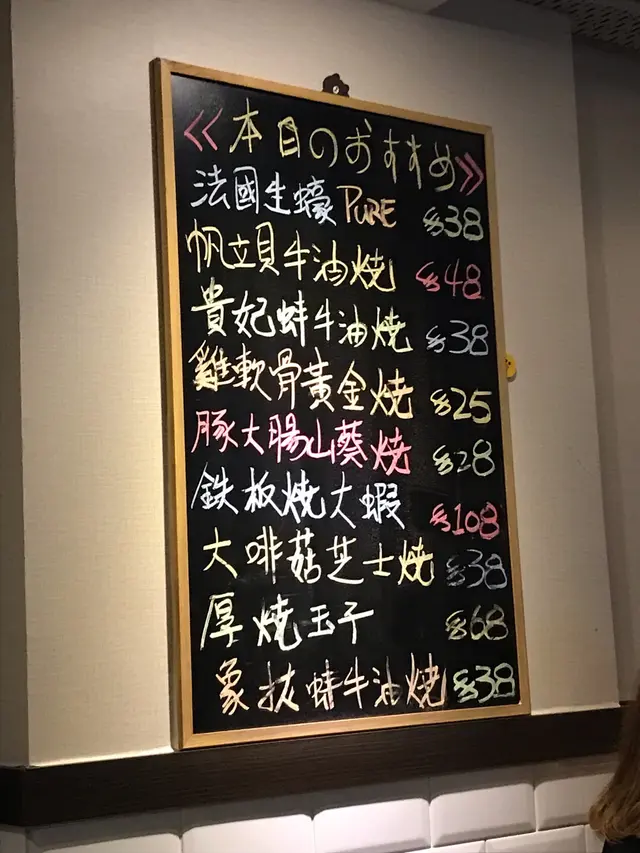 《本日のおすすめ》
法國生蠔 PURE $38
帆立貝牛油燒 $48
貴妃蚌牛油燒 $38
雞軟骨黃金燒 $25
豚大腸山葵燒 $28
鉄板燒大蝦 $108
大啡菇芝士燒 $38
厚燒玉子 $68
象拔蚌牛油燒 $38